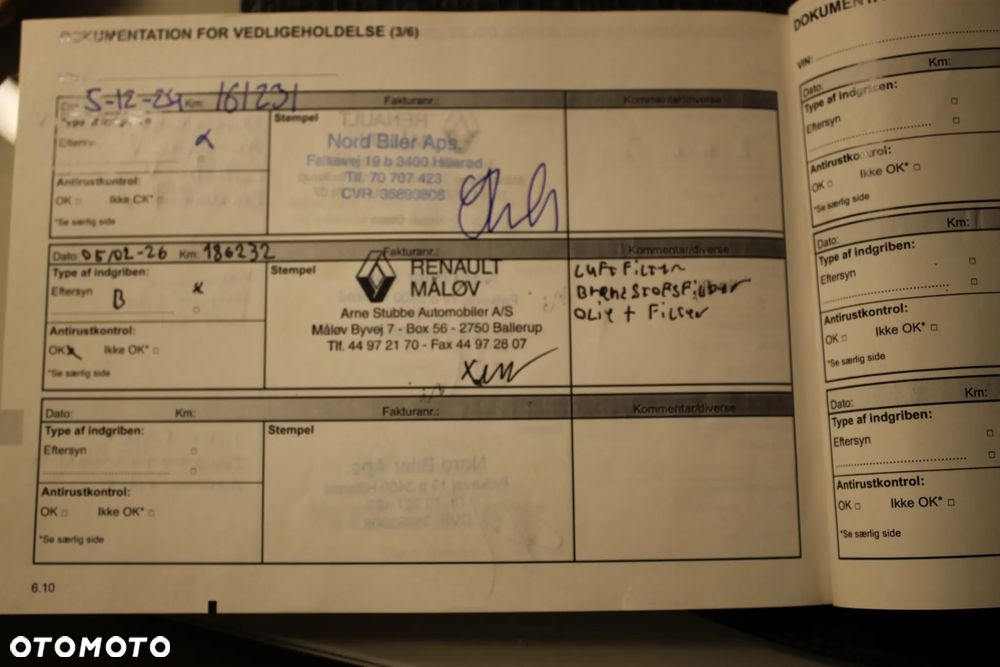 DOKUMENTATION FOR VEDLIGEHOLDELSE (3/6)
5-12-24 Km: 161231 Fakturanr.: Kommentar/diverse
Type af indgriben
Stempel
Eftersyn
Nord Biler Aps.
Falkevej 19 b 3400 Hillerød
Tlf. 70 707 423
CVR. 35893806
Antirustkontrol:
OK □ Ikke OK* □
*Se særlig side
Dato: 05/02-26 Km: 186232 Fakturanr.: Kommentar/diverse
Type af indgriben:
Eftersyn B x
Stempel
RENAULT
MÅLØV
Arne Stubbe Automobiler A/S
Måløv Byvej 7 - Box 56 - 2750 Ballerup
Tlf. 44 97 21 70 - Fax 44 97 28 07
Luft Filter
Olie + Filter
Antirustkontrol:
OK x Ikke OK* □
*Se særlig side
Dato: Km: Fakturanr.: Kommentar/diverse
Type af indgriben:
Eftersyn □
Stempel
Antirustkontrol:
OK □ Ikke OK* □
*Se særlig side
6.10
VIN:
Dato: Km:
Type af indgriben:
Eftersyn □
Antirustkontrol:
OK □ Ikke OK* □
*Se særlig side
Dato: Km:
Type af indgriben:
Eftersyn □
Antirustkontrol:
OK □ Ikke OK* □
*Se særlig side
Dato: Km:
Type af indgriben:
Eftersyn □
Antirustkontrol:
OK □ Ikke OK* □
*Se særlig side
OTOMOTO